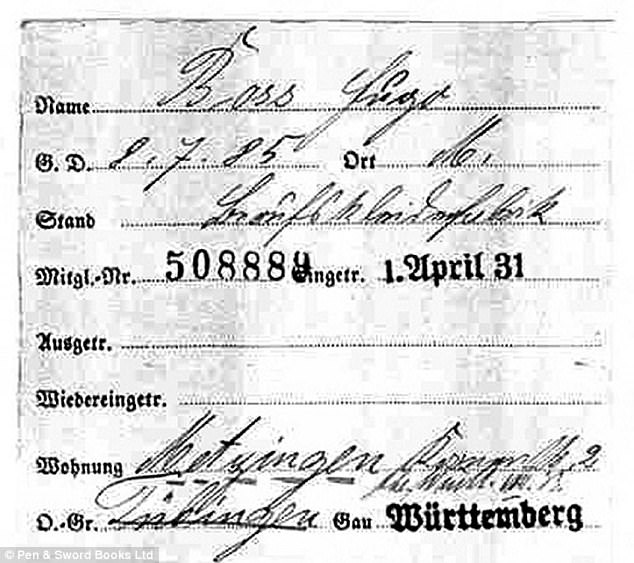 Name Boss Hugo
G. D. 8.7.85 Ort M.
Stand Berufskleiderfabrik
Mitgl.-Nr. 508889 Eingetr. 1. April 31
Ausgetr.
Wiedereingetr.
Wohnung Metzingen
O.-Gr. Tübingen Gau Württemberg
© Pen & Sword Books Ltd